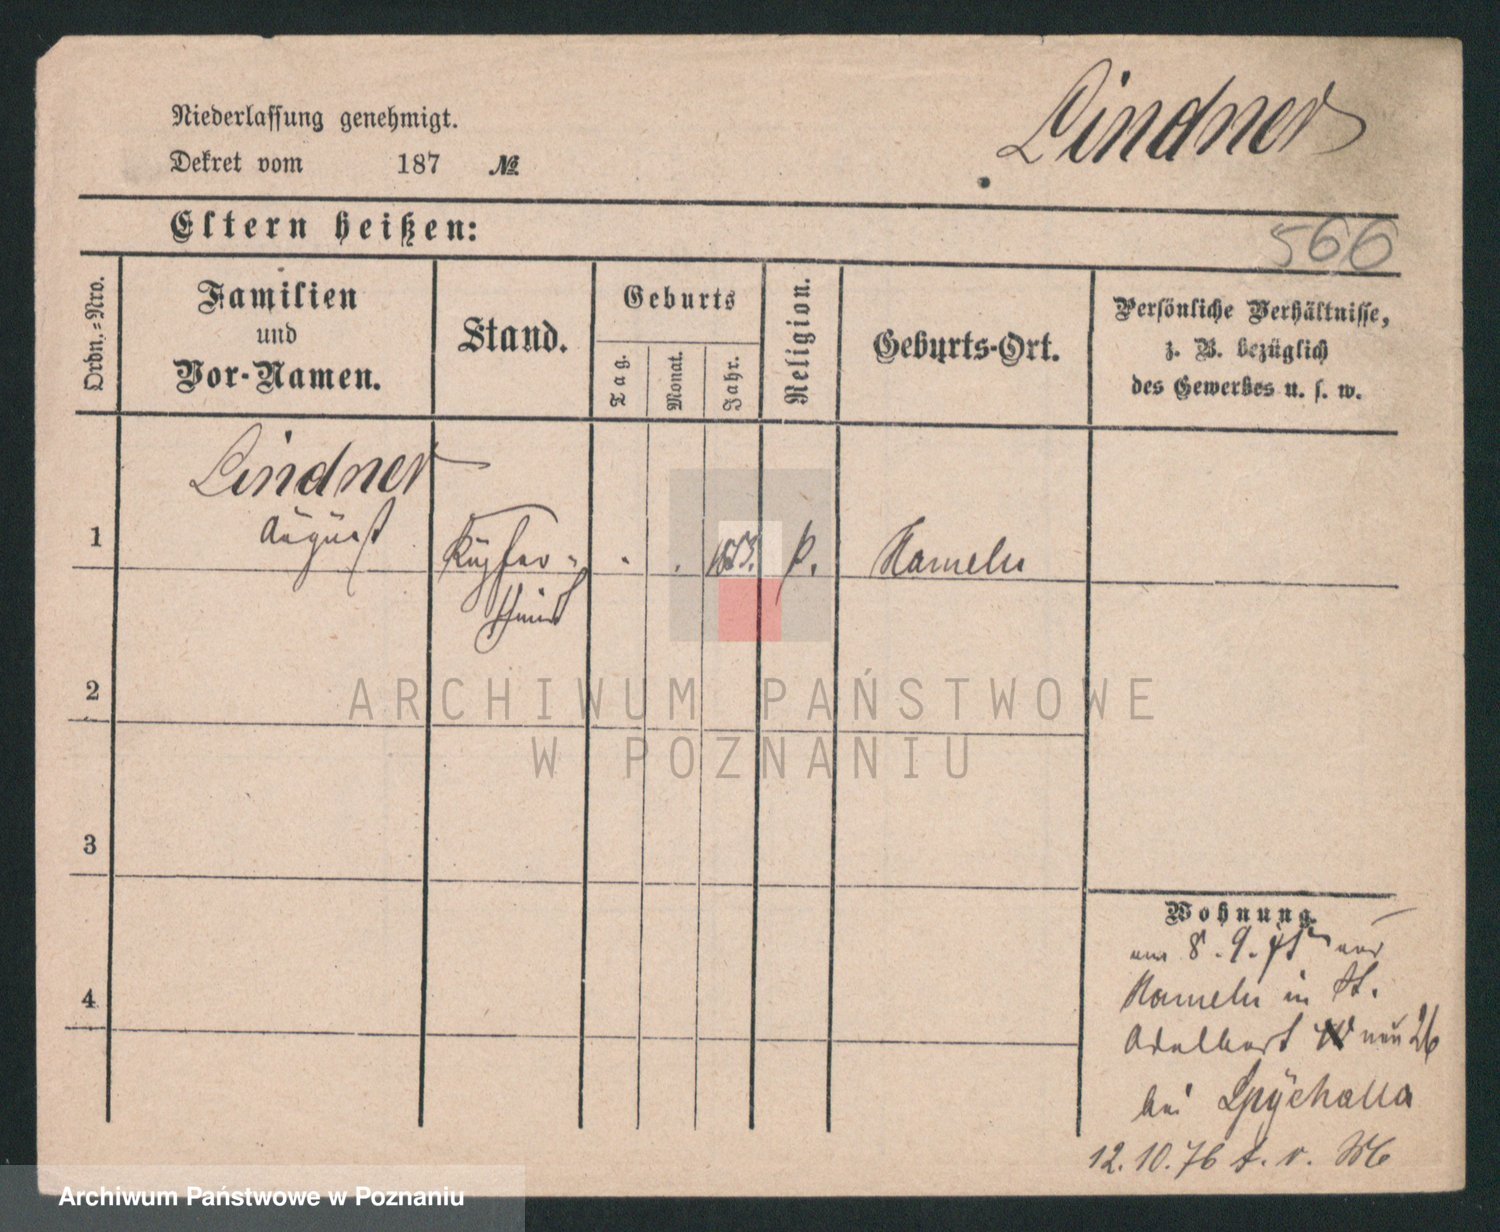 Lindner
Niederlassung genehmigt.
Dekret vom 187 №
Eltern heißen:
566
Ordn.-Nro.
Familien
und
Vor-Namen.
Stand.
Geburts
Tag.
Monat.
Jahr.
Religion.
Geburts-Ort.
Persönliche Verhältnisse,
z. B. bezüglich
des Gewerbes u. s. w.
Lindner
1 August Kupfer- 1853. p. Hameln
schmied
ARCHIWUM PAŃSTWOWE
W POZNANIU
2
3
4
Wohnung.
8. 9. aus
Hameln in St.
Adalbert neu 26
bei Spychalla
12. 10. 76 v.
Archiwum Państwowe w Poznaniu